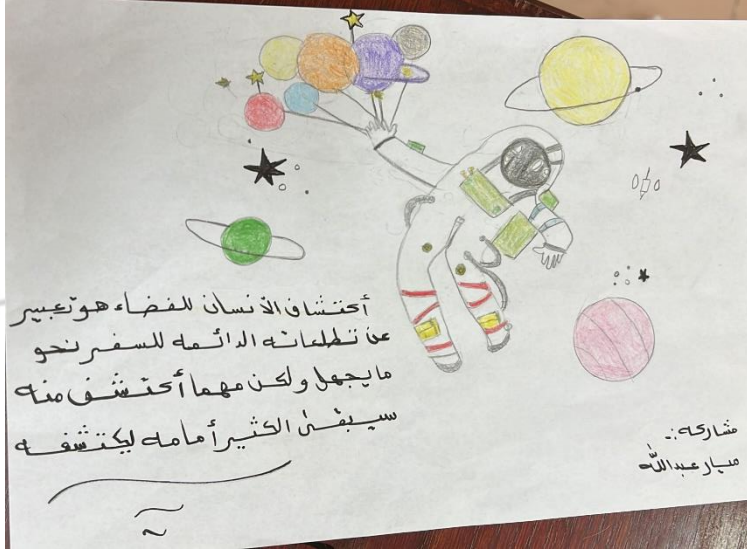 أكتشاف الأنسان للفضاء هو تعبير
عن تطلعاته الدائمه للسفر نحو
ما يجهل ولكن مهما أكتشف منه
سيبقى الكثير أمامه ليكتشفه
مشاركه :-
ميار عبدالله